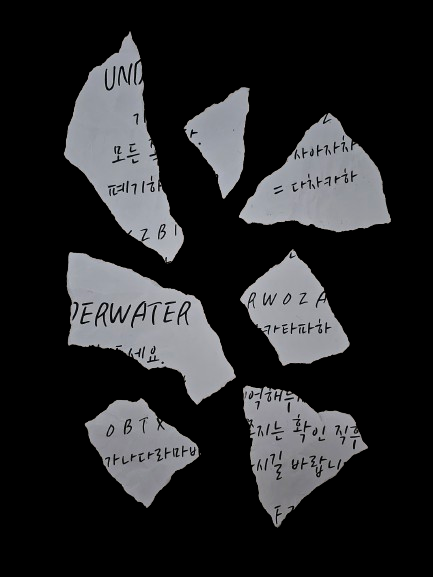 UND
모든
폐기하
ZBI
사아자차
= 다차카하
DERWATER
세요.
RWOZA
카타파하
OBTX
가나다라마바
억해두
지는 확인 직후
시길 바랍니